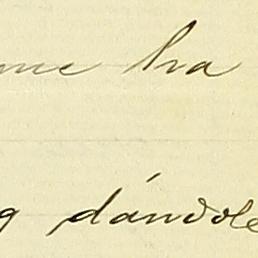 me ha
dándole